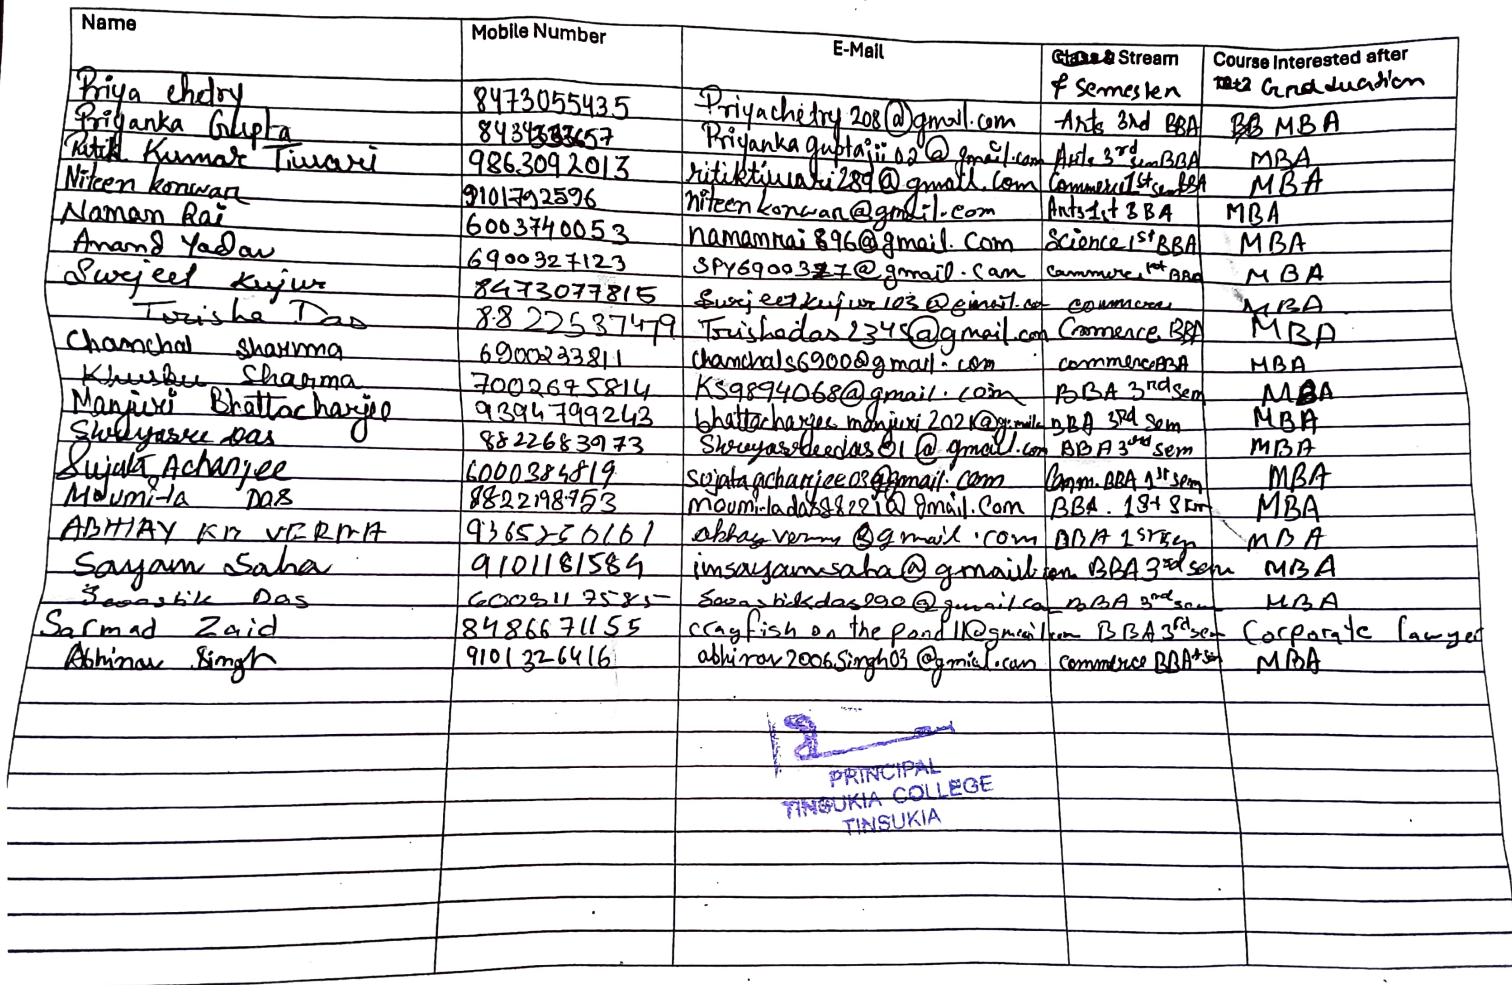 Name Mobile Number E-Mail Stream Course Interested after
& Semester Graduation
Priya chetry 8473055435 Priyachetry208@gmail.com Arts 3rd BBA MBA
Priyanka Gupta Priyankaguptajii02@gmail.com Arts 3rd sem BBA MBA
Ritik Kumar Tiwari 9863092013 ritiktiwari289@gmail.com Commerce 1st sem BBA MBA
Niteen konwar 9101792596 niteenkonwar@gmail.com Arts 1st BBA MBA
Naman Rai 6003740053 namanrai896@gmail.com Science 1st BBA MBA
Anand Yadav 6900327123 SPY6900327@gmail.com commerce 1st BBA MBA
Surjeet Kujur 8473077815 Surjeetkujur103@gmail.co commerce MBA
Trishe Das 8822537479 Trishadas2345@gmail.com Commerce BBA MBA
Chamchal sharma 6900233811 chamchals6900@gmail.com commerce BBA MBA
Khusbu Sharma 7002675814 KS9894068@gmail.com BBA 3rd sem MBA
Manjuri Bhattacharjee 9394799243 bhattacharjee.manjuri2021@gmail BBA 3rd Sem MBA
Shreyasree Das 8822683973 Shreyasreedas01@gmail.com BBA 3rd sem MBA
Sujata Acharjee 6000384819 sujataacharjee03@gmail.com Comm. BBA 1st sem MBA
Moumita DAS 8822198753 moumitadas88221@gmail.com BBA. 1st Sem MBA
ABHAY KR VERMA 9365250161 abhayverma@gmail.com BBA 1st sem MBA
Sayam Saha 9101181584 imsayamsaha@gmail.com BBA 3rd sem MBA
Swastik Das 6003117585 Swastikdas090@gmail.co BBA 3rd sem MBA
Sarmad Zaid 8486671155 crayfish on the pond11@gmail.com BBA 3rd sem Corporate lawyer
Abhinav Singh 9101326416 abhinav2006Singh03@gmial.com commerce BBA 1st sem MBA
PRINCIPAL
TINSUKIA COLLEGE
TINSUKIA